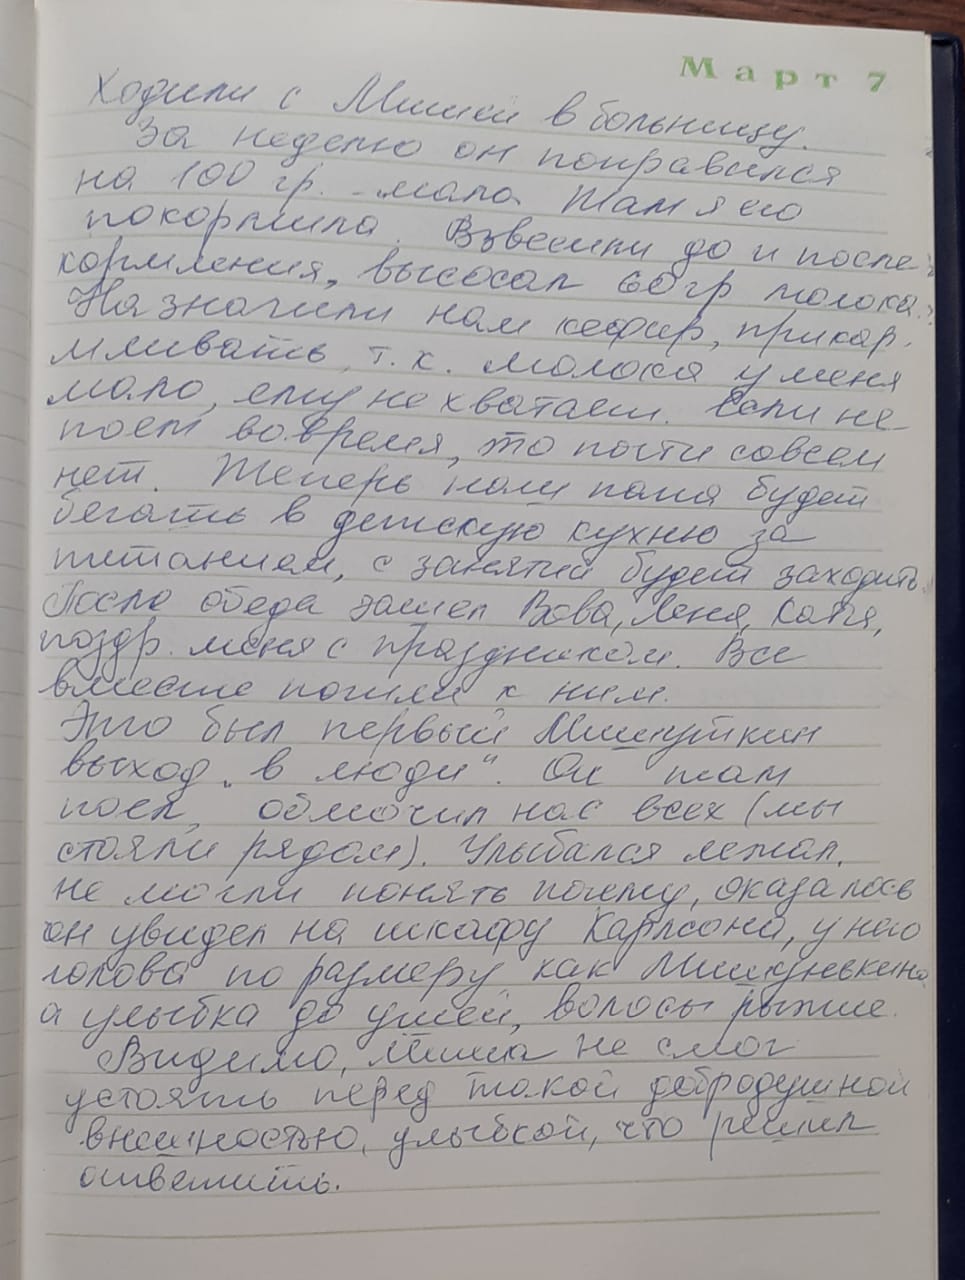 Март 7
Ходили с Мишей в больницу.
За неделю он поправился
на 100 гр. - мало. Там я его
покормила. Взвесили до и после
кормления, высосал 60 гр молока.
Назначили нам кефир, прикар-
мливать, т.к. молока у меня
мало, ему не хватает. Если не
поем вовремя, то почти совсем
нет. Теперь наш папа будет
бегать в детскую кухню за
питанием, с занятий будет заходить.
После обеда зашел Вова, Лена, Катя,
поздр. меня с праздником. Все
вместе пошли к ним.
Это был первый Мишуткин
выход "в люди". Он там
поел, обмочил нас всех (мы
стояли рядом). Улыбался лежал,
не могли понять почему, оказалось
он увидел на шкафу Карлсона, у него
голова по размеру как Мишунькина
а улыбка до ушей, волосы рыжие.
Видимо, Миша не смог
устоять перед такой добродушной
внешностью, улыбкой, что решил
ответить.